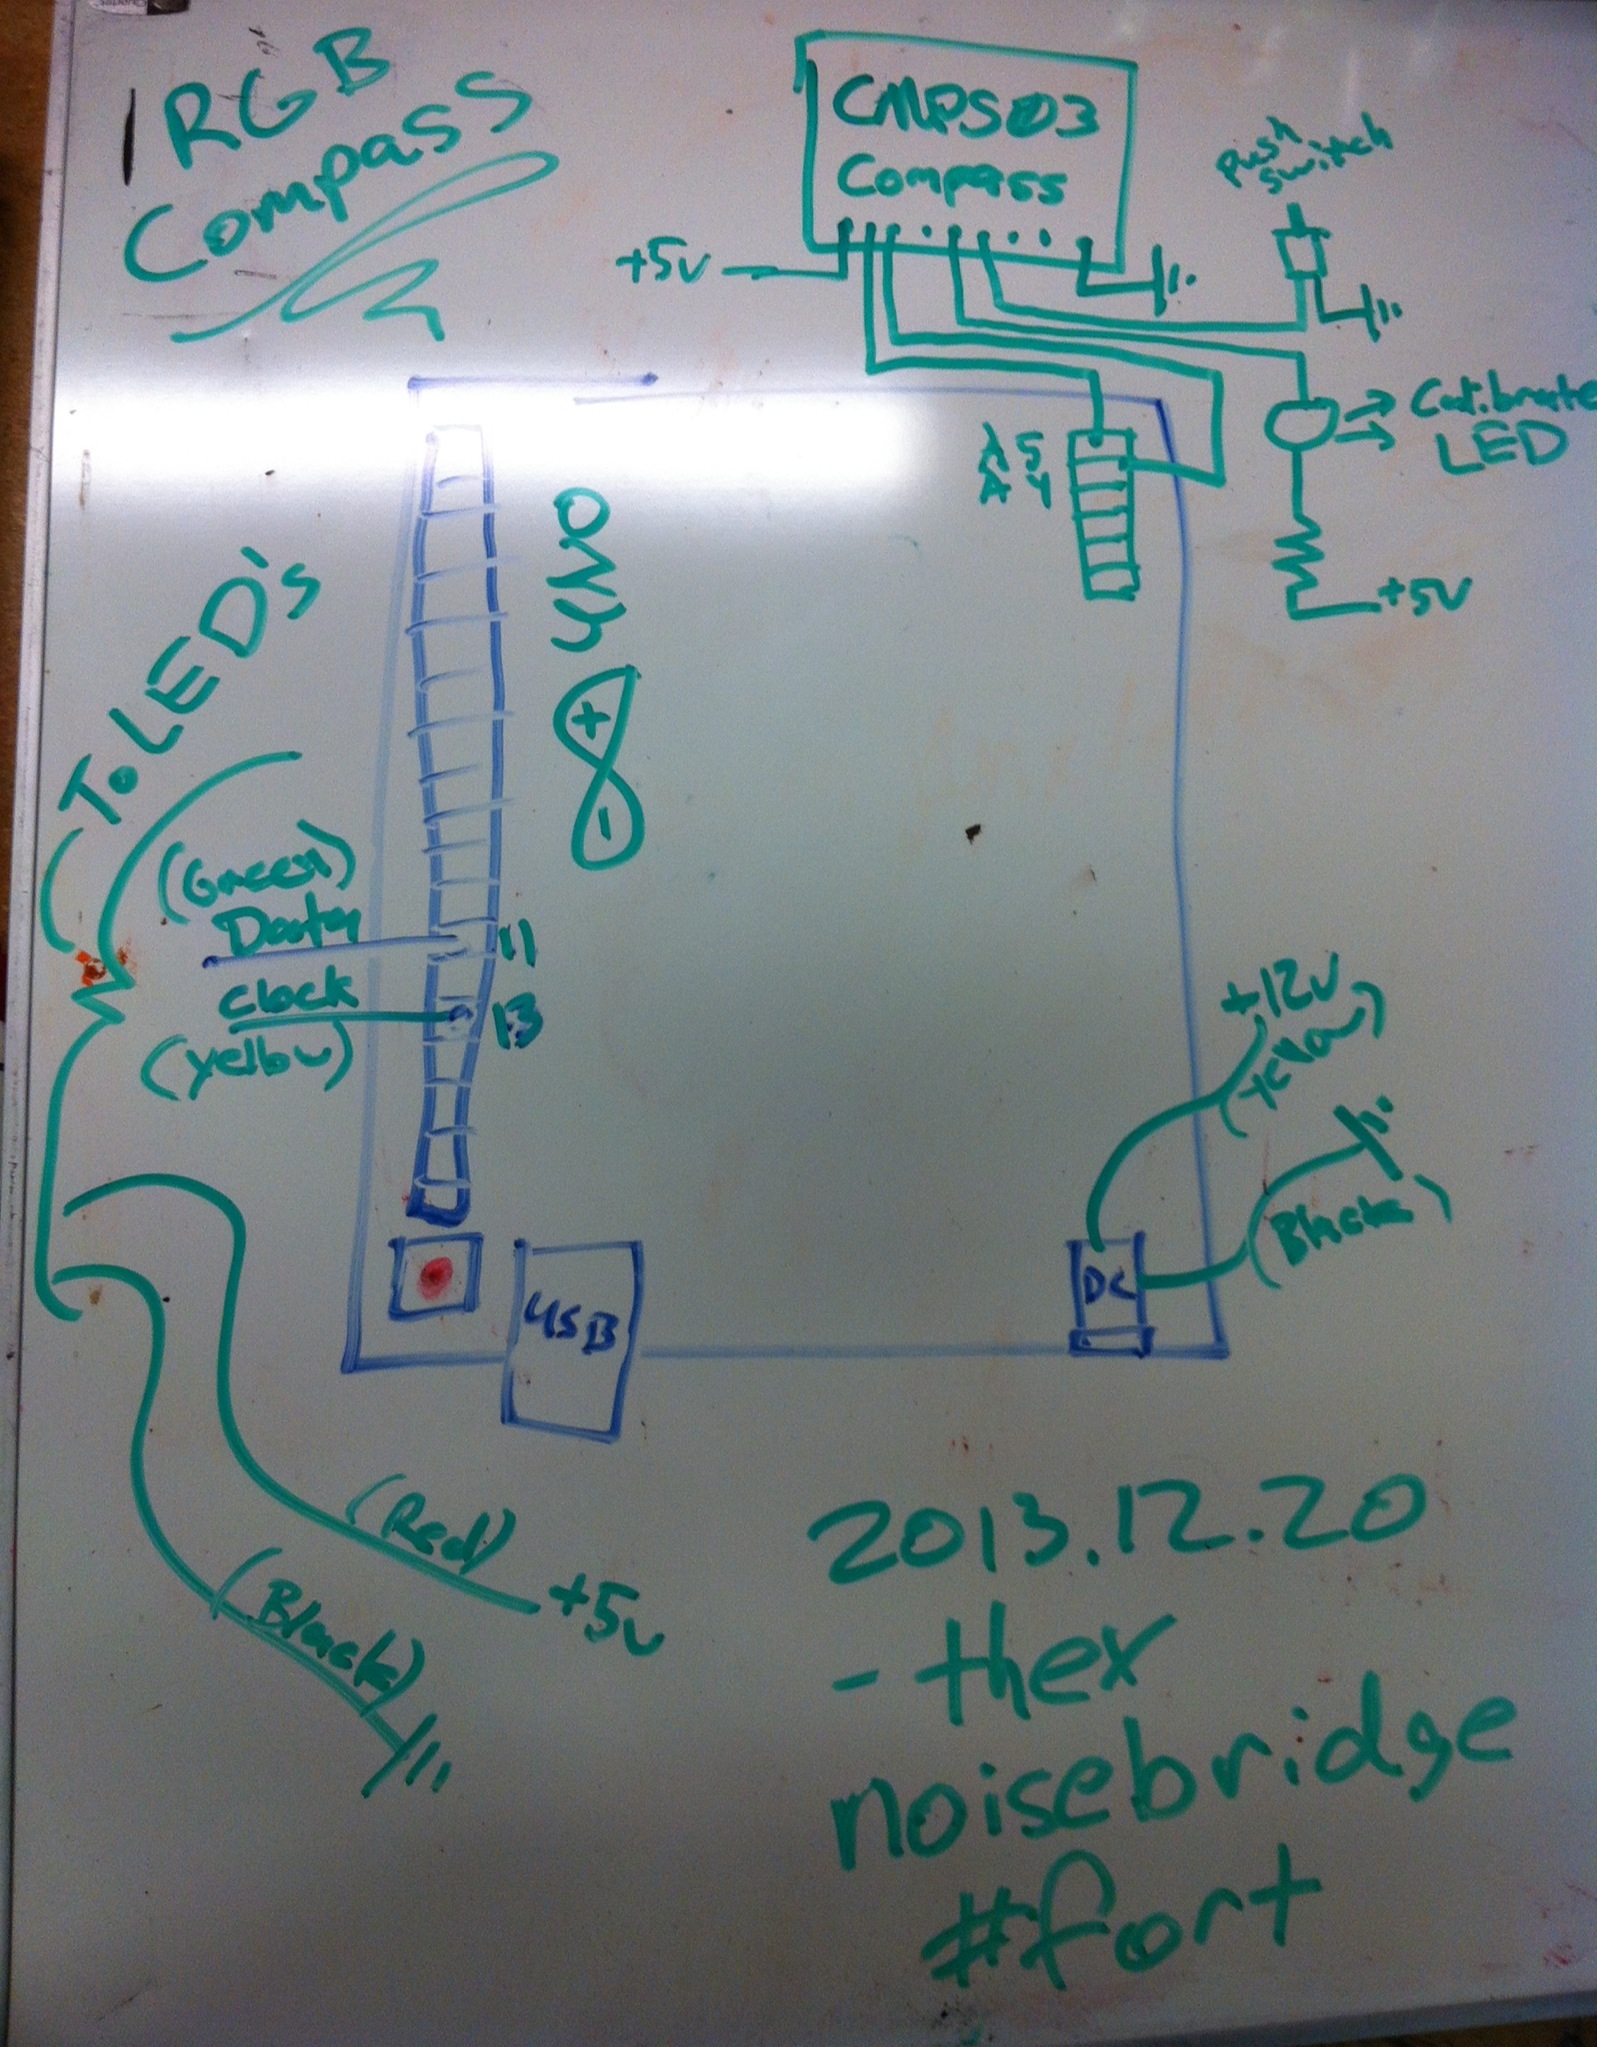 RGB
Compass
CMPS03
Compass
Push
Switch
+5v
Calibrate
LED
A 5
A 4
+5V
To LED's
Uno
+ -
(Green)
Data
11
Clock
13
(Yellow)
+12V
(Yellow)
(Black)
DC
USB
(Red)
+5v
(Black)
2013.12.20
- thex
noisebridge
#fort